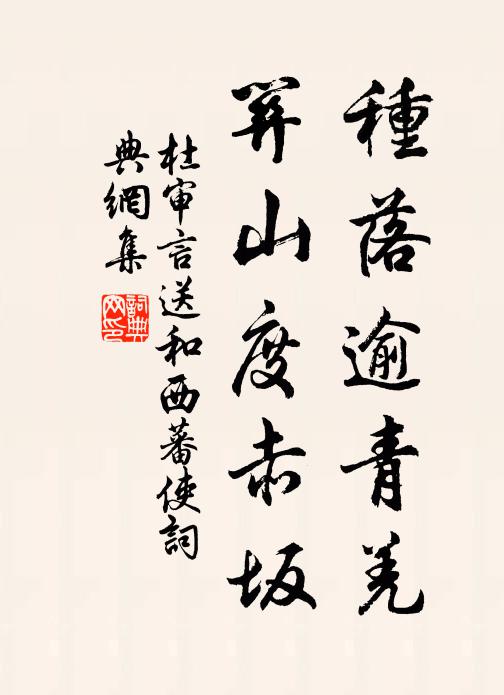 種落逾青羌
關山度赤坂
杜审言送和西蕃使詞
典網集
詞典
网印